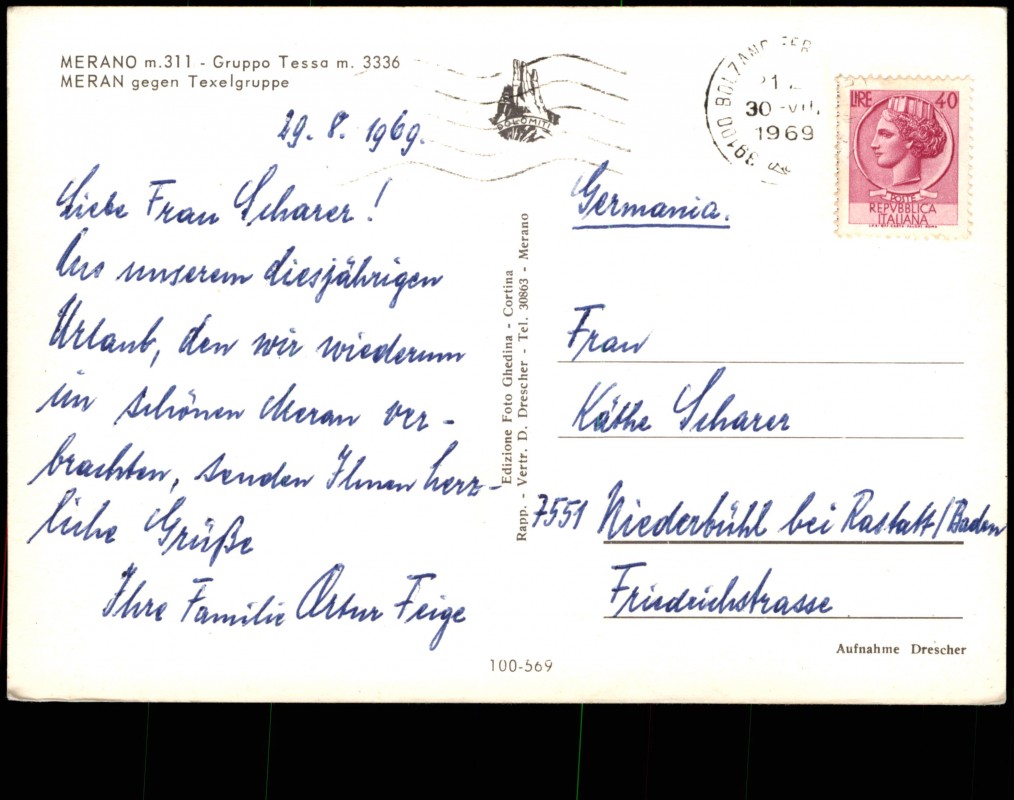 MERANO m.311 - Gruppo Tessa m. 3336
MERAN gegen Texelgruppe
29. 8. 1969.
Liebe Frau Scharer!
Aus unserem diesjährigen
Urlaub, den wir wiederum
im schönen Meran ver-
brachten, senden Ihnen herz-
liche Grüße
Ihre Familie Artur Feige
DOLOMITI
39100 BOLZANO FER
30 -VIII.
1969
LIRE 40
POSTE
REPVBBLICA
ITALIANA
Edizione Foto Ghedina - Cortina
Rapp. - Vertr. D. Drescher - Tel. 30863 - Merano
Germania.
Frau
Käthe Scharer
7551 Niederbühl bei Rastatt/Baden
Friedrichstrasse
Aufnahme Drescher
100-569